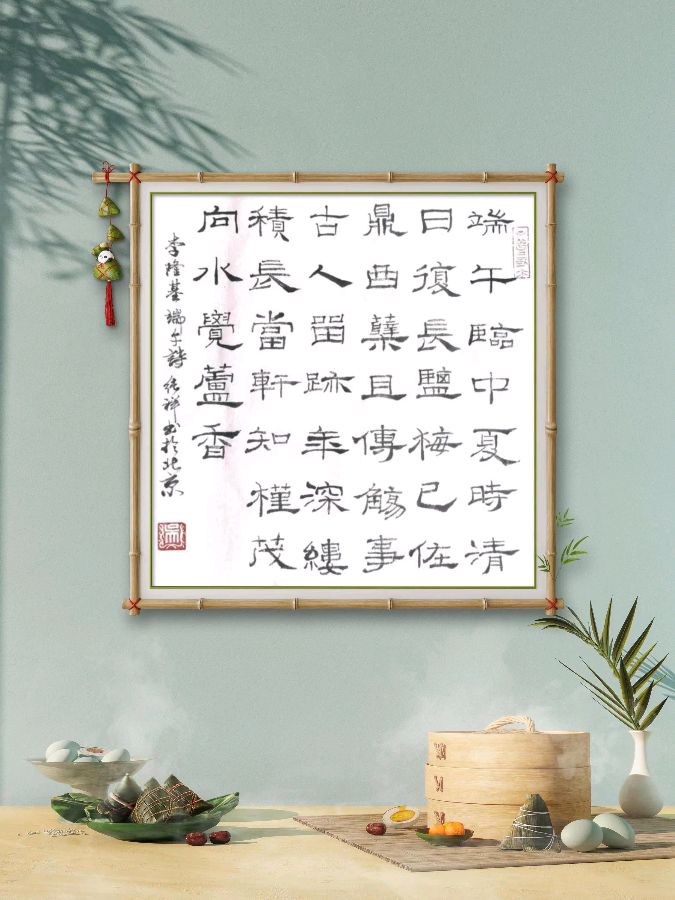 端午臨中夏時清
日復長鹽梅已佐
鼎曲糵且傳觴事
古人留跡年深縷
積長當軒知槿茂
向水覺蘆香
李隆基端午詩 祥书於北京